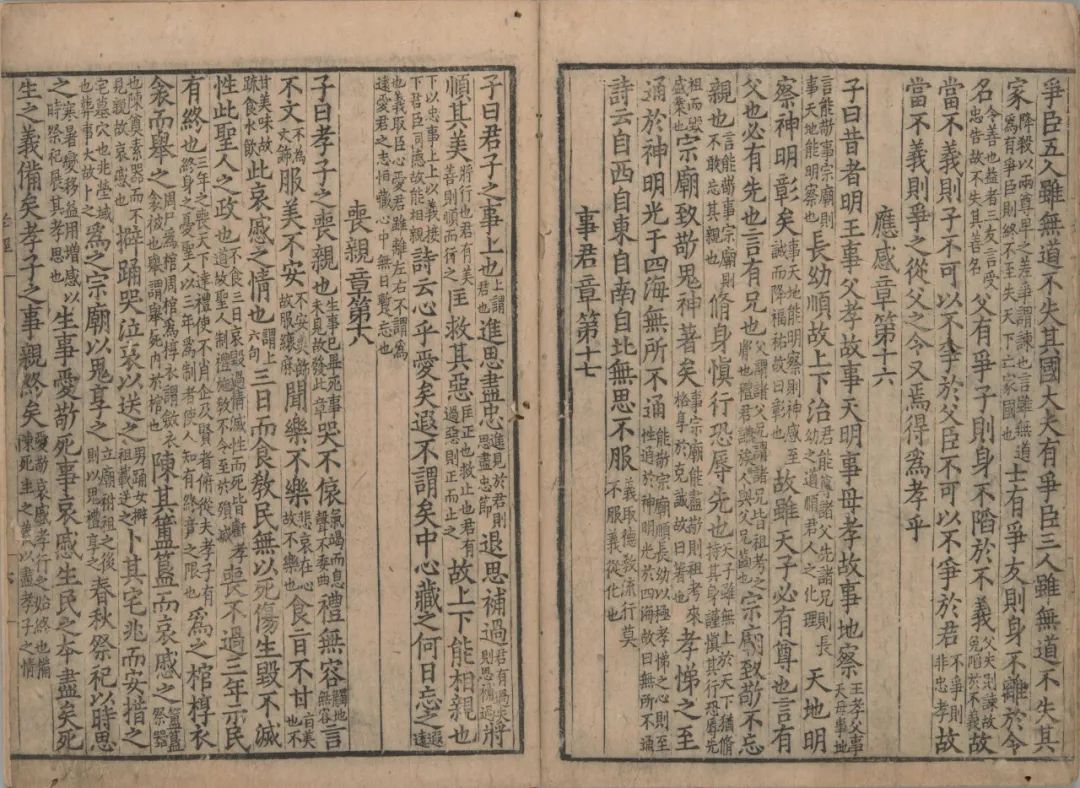 爭臣五人雖無道不失其國大夫有爭臣三人雖無道不失其
家降殺以兩尊卑之差爭謂諫也言雖無道為有爭臣則終不至失天下亡家國也士有爭友則身不離於令
名令善也益者三友言受忠告故不失其善名父有爭子則身不陷於不義父失則諫故免陷於不義故
當不義則子不可以不爭於父臣不可以不爭於君不爭則非忠孝故
當不義則爭之從父之令又焉得爲孝乎
應感章第十六
子曰昔者明王事父孝故事天明事母孝故事地察王孝父事天母事地
言能敬事宗廟則事天地能明察也長幼順故上下治君能尊諸父先諸兄則長幼之道順君人之化理天地明
察神明彰矣事天地能明察則神感至誠而降福祐故曰彰也故雖天子必有尊也言有
父也必有先也言有兄也父謂諸父兄謂諸兄皆祖考之胤也禮君讌族人與父兄齒也宗廟致敬不忘
親也言能敬事宗廟則不敢忘其親也脩身慎行恐辱先也天子雖無上於天下猶脩持其身謹慎其行恐辱先
祖而毀盛業也宗廟致敬鬼神著矣事宗廟能盡敬則祖考來格享於克誠故曰著也孝悌之至
通於神明光于四海無所不通能敬宗廟順長幼以極孝悌之心則至性通於神明光於四海故曰無所不通
詩云自西自東自南自北無思不服義取德教流行莫不服義從化也
事君章第十七
子曰君子之事上也上謂君也進思盡忠進見於君則思盡忠節退思補過君有過失則思補過將
順其美將行也君有美善則順而行之匡救其惡匡正也救止也君有過惡則正而止之故上下能相親也
下以忠事上上以義接下君臣同德故能相親詩云心乎愛矣遐不謂矣中心藏之何日忘之遐遠
也義取臣心愛君雖離左右不謂爲遠愛君之志恒藏心中無日暫忘也
喪親章第十八
子曰孝子之喪親也生事已畢死事未見故發此章哭不偯氣竭而息聲不委曲禮無容觸地無容言
不文不爲文飾服美不安不安美飾故服縗麻聞樂不樂悲哀在心故不樂也食旨不甘旨美也不
甘美味故疏食水飲此哀慼之情也謂上六句三日而食教民無以死傷生毀不滅
性此聖人之政也不食三日哀毀過情滅性而死皆虧孝道故聖人制禮施教不令至於殞滅喪不過三年示民
有終也三年之喪天下達禮使不肖企及賢者俯從夫孝子有終身之憂聖人以三年爲制者使人知有終竟之限也爲之棺椁衣
衾而舉之周尸爲棺周棺爲椁衣謂斂衣衾被也舉謂舉屍內於棺也陳其簠簋而哀慼之簠簋祭器
也陳奠素器而不見親故哀慼也擗踊哭泣哀以送之男踊女擗祖載送之卜其宅兆而安措之
宅墓穴也兆塋域也葬事大故卜之爲之宗廟以鬼享之立廟祔祖之後則以鬼禮享之春秋祭祀以時思
之寒暑變移益用增感以時祭祀展其孝思也生事愛敬死事哀慼生民之本盡矣死
生之義備矣孝子之事親終矣愛敬哀慼孝行之始終也備陳死生之義以盡孝子之情